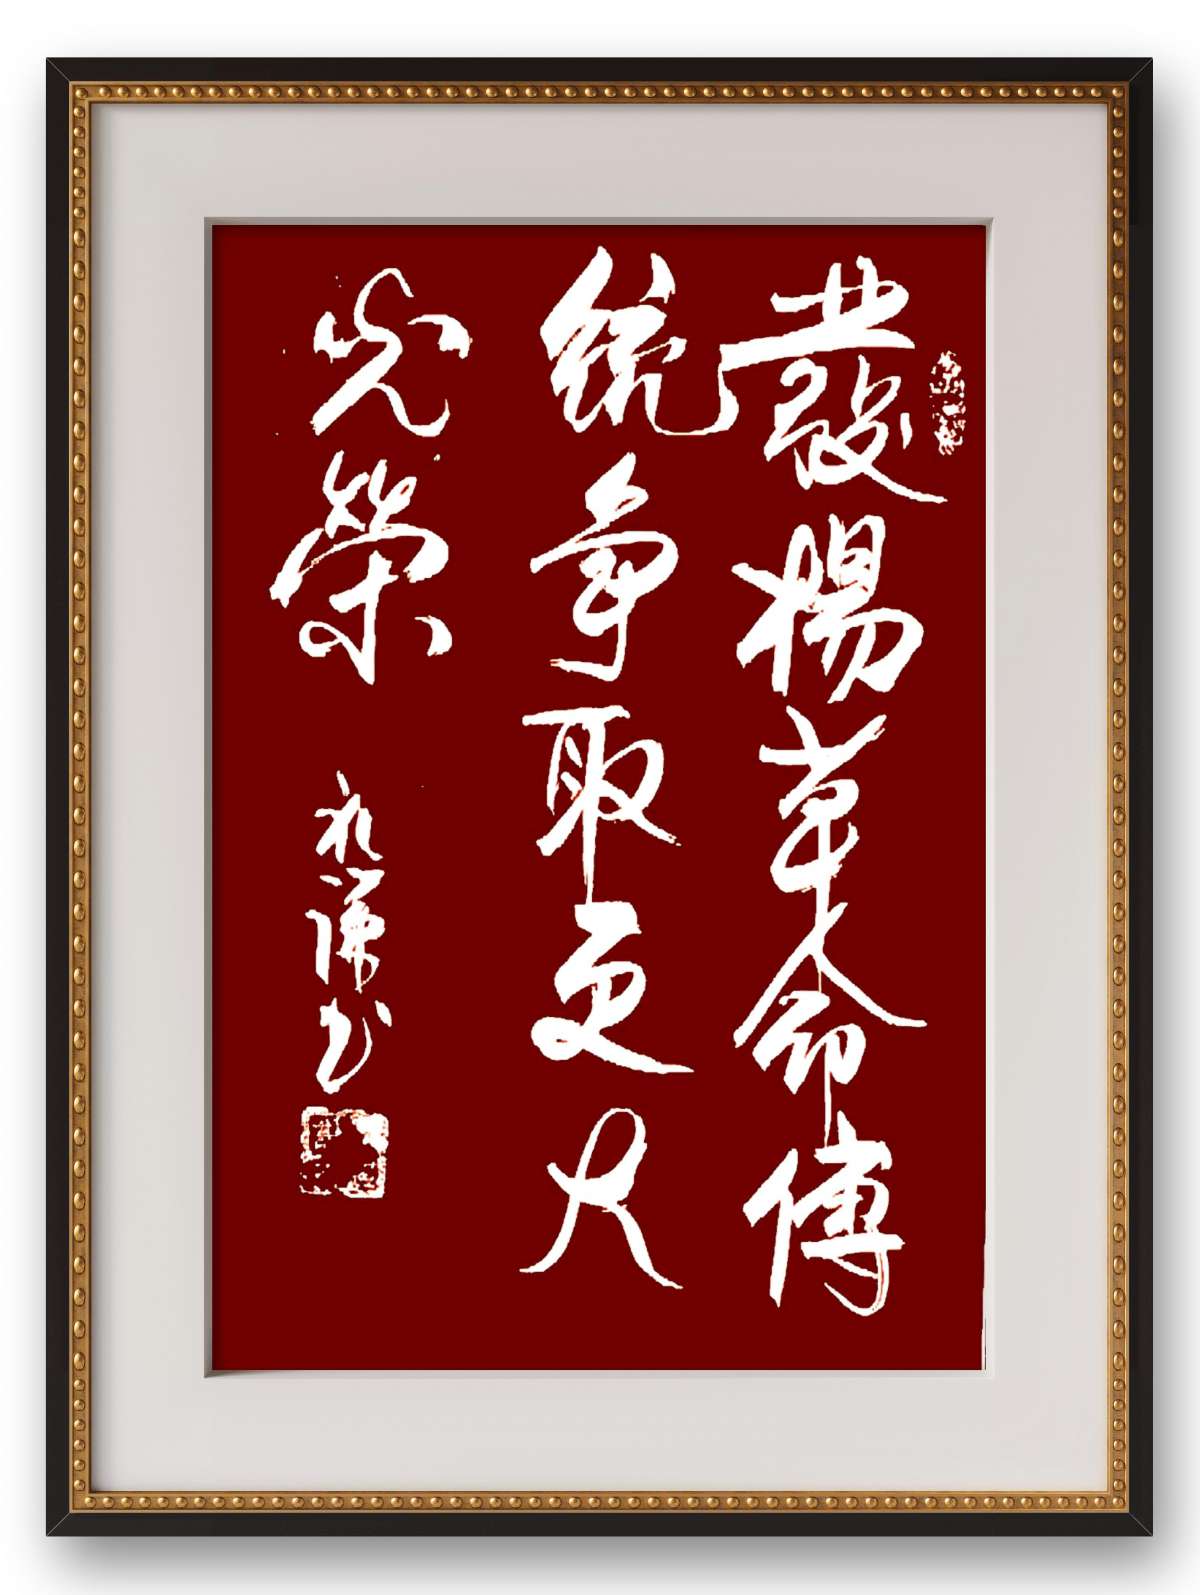 發揚革命傳
統争取更大
光榮